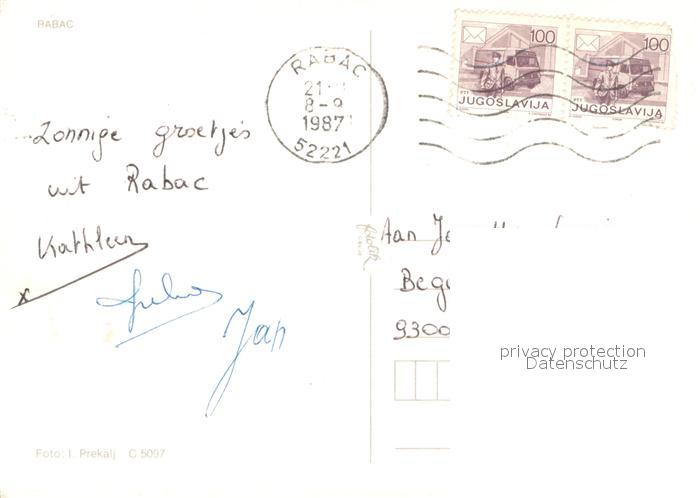 RABAC
100
100
PTT
JUGOSLAVIJA
PTT
JUGOSLAVIJA
RABAC
21
8-9
1987
52221
Zonnige groetjes
uit Rabac
Kathleen
Jan
Aan
9300
privacy protection
Datenschutz
Foto: I. Prekalj C 5097